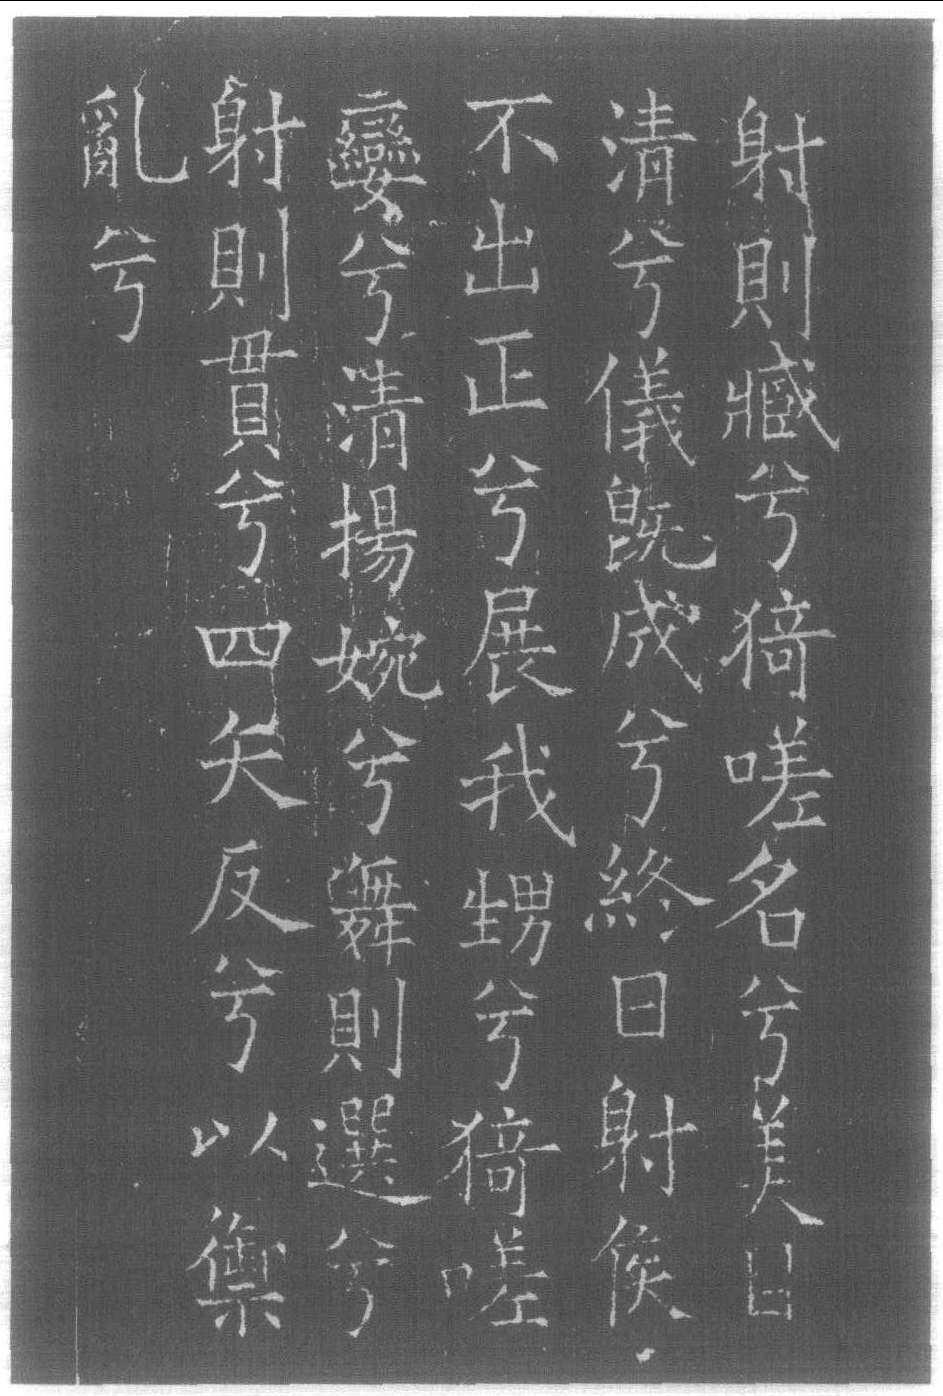 射則臧兮猗嗟名兮美目
清兮儀既成兮終日射侯
不出正兮展我甥兮猗嗟
孌兮清揚婉兮舞則選兮
射則貫兮四矢反兮以禦
亂兮